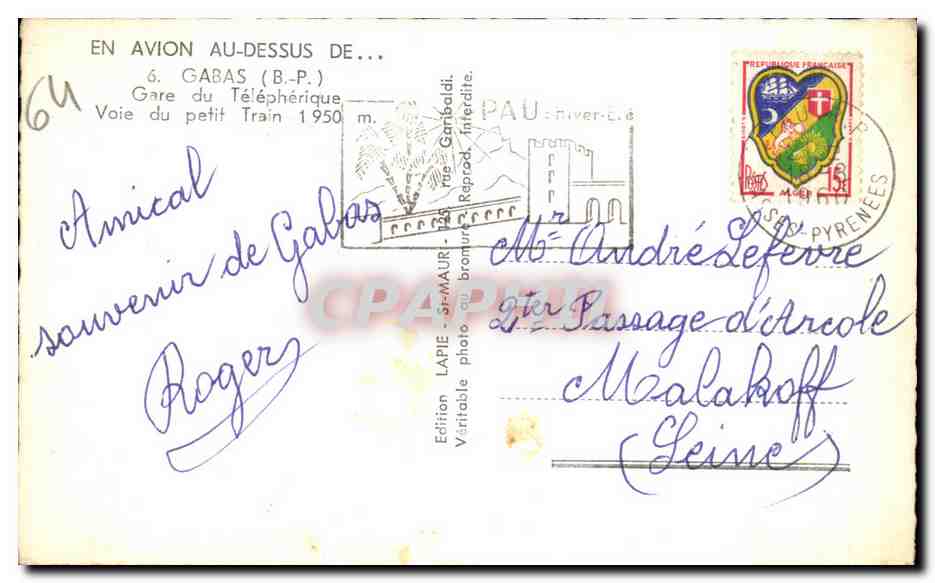 EN AVION AU-DESSUS DE...
6. GABAS (B.-P.)
Gare du Téléphérique
Voie du petit Train 1950 m.
64
Amical
souvenir de Gabas
Roger
Edition LAPIE - St-MAUR - 125, rue Garibaldi.
Véritable photo au bromure - Reprod. Interdite.
CPAPHIL
PAU: Hiver-Eté
REPUBLIQUE FRANÇAISE
Postes
15f
ALGER
SES-PYRENEES
Mr André Lefèvre
2ter Passage d'Arcole
Malakoff
(Seine)